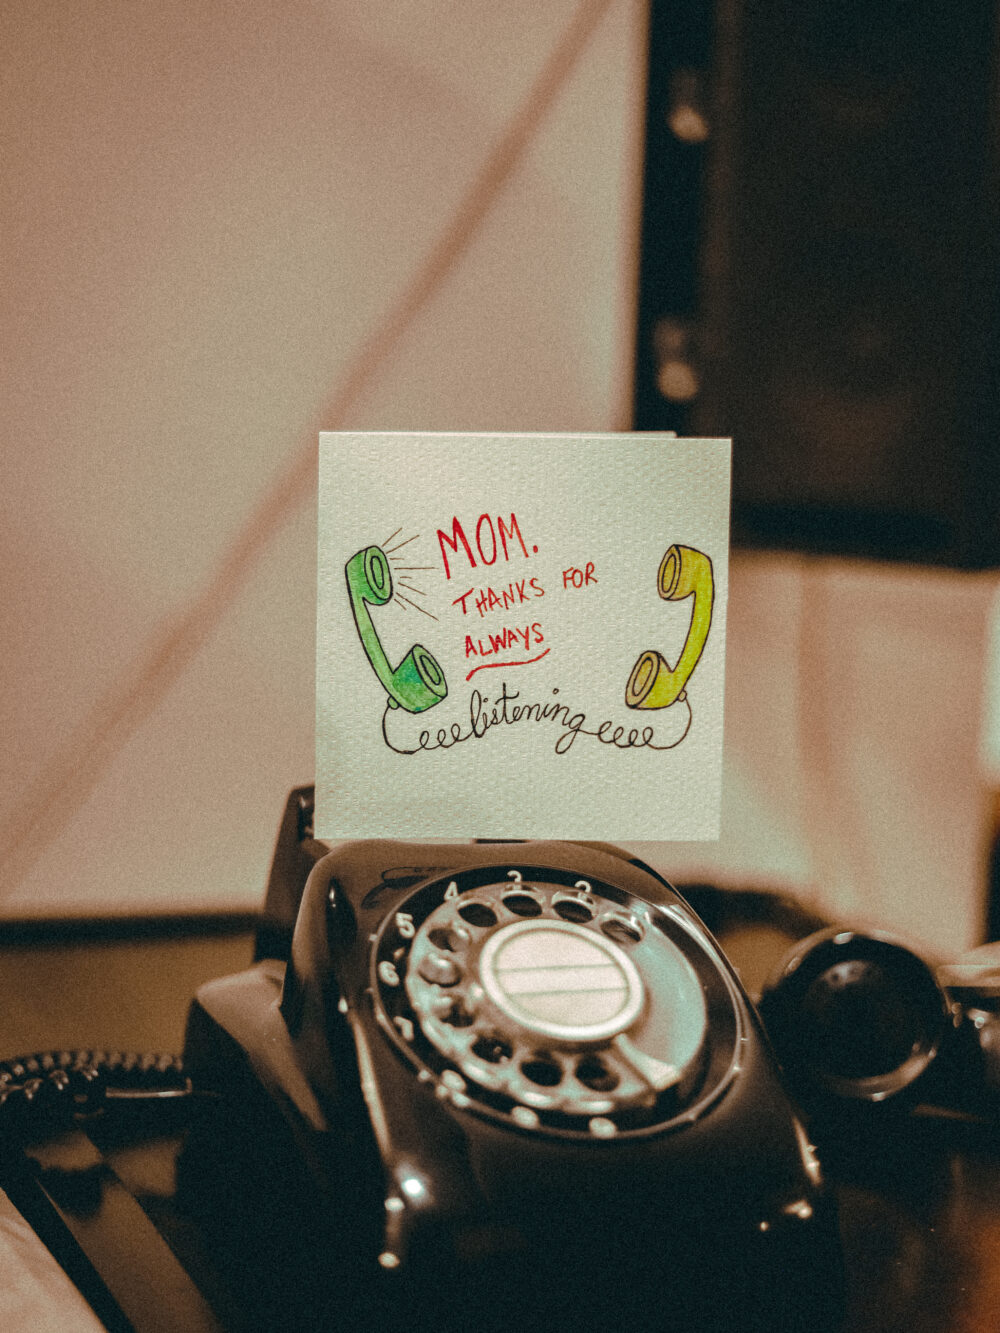 MOM.
THANKS FOR
ALWAYS
listening
4 3 2
5
6